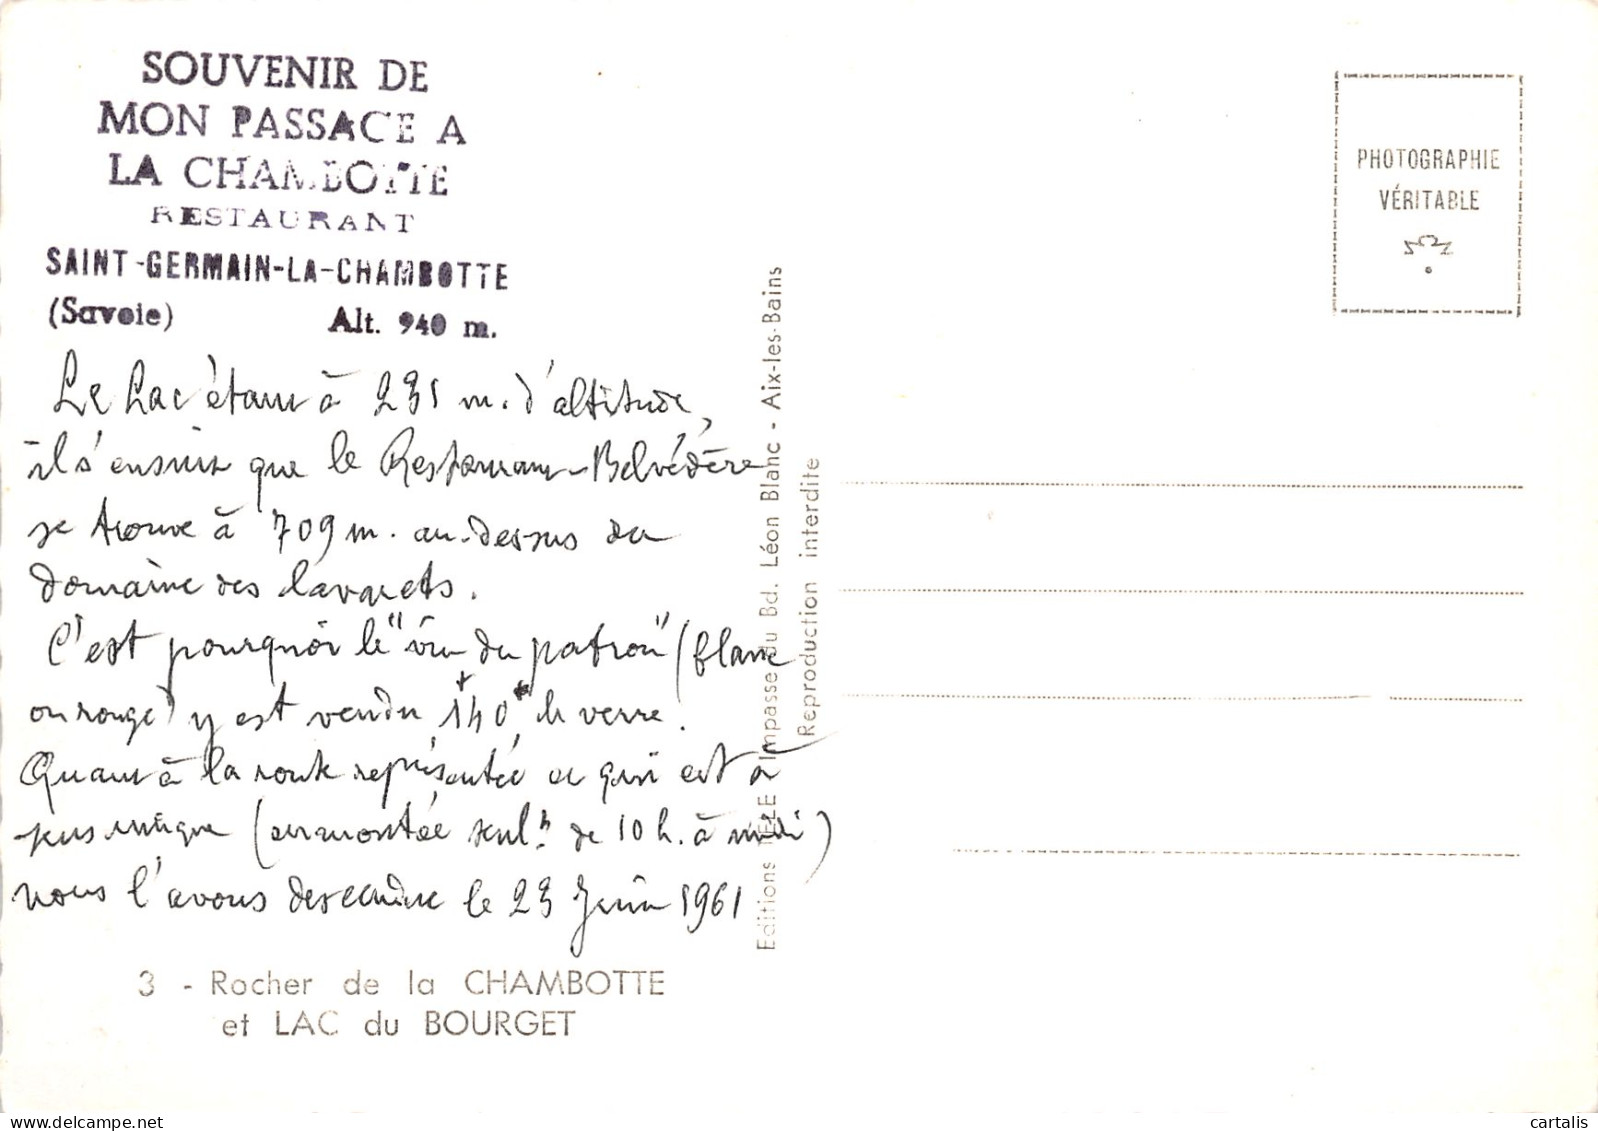 SOUVENIR DE
MON PASSAGE A
LA CHAMBOTTE
RESTAURANT
SAINT-GERMAIN-LA-CHAMBOTTE
(Savoie) Alt. 940 m.
Le Lac étant à 231 m. d'altitude,
il s'ensuit que le Restaurant-Belvédère
se trouve à 709 m. au-dessus du
domaine des lavarets.
C'est pourquoi le "vin du patron" (blanc
ou rouge) y est vendu 140 le verre!
Quant à la route représentée et qui est à
sens unique (en montée seulᵗ de 10 h. à midi)
nous l'avons descendue le 23 Juin 1961
3 - Rocher de la CHAMBOTTE
et LAC du BOURGET
Impasse du Bd. Léon Blanc - Aix-les-Bains
Editions
Reproduction interdite
PHOTOGRAPHIE
VÉRITABLE
cartalis